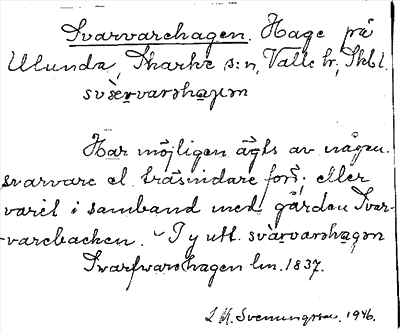 Svarvarehagen. Hage på
Ulunda, Skarke s:n, Valle hr, Skbl.
svàrvarshagən
Har möjligen ägts av någon
svarvare el. träsnidare förr, eller
varit i samband med gården Svar-
varebacken. Ty utt. svàrvarshagən
Svarfwarehagen lm. 1837.
Svenungsson. 1946.